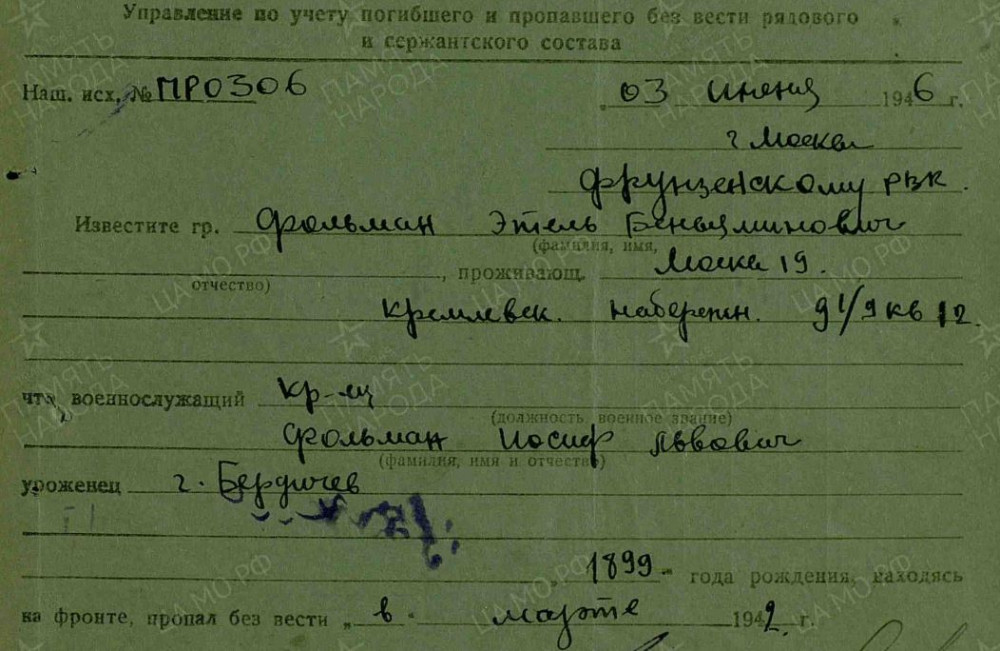 Управление по учету погибшего и пропавшего без вести рядового
и сержантского состава
Наш. исх. № ПР0306 „03 июня 1946 г.
г Москва
Фрунзенскому РВК.
Известите гр. Фольман Этель Беньяминович
(фамилия, имя,
, проживающ. Москва 19.
отчество)
Кремлевск. набережн. 9 1/9 кв 12.
что военнослужащий кр-ец
(должность, военное звание)
Фольман Иосиф Львович
(фамилия, имя и отчество)
уроженец г. Бердичев
1899 - года рождения, находясь
на фронте, пропал без вести „в" марте 1942 г.
ПАМЯТЬ НАРОДА
ЦАМО.РФ